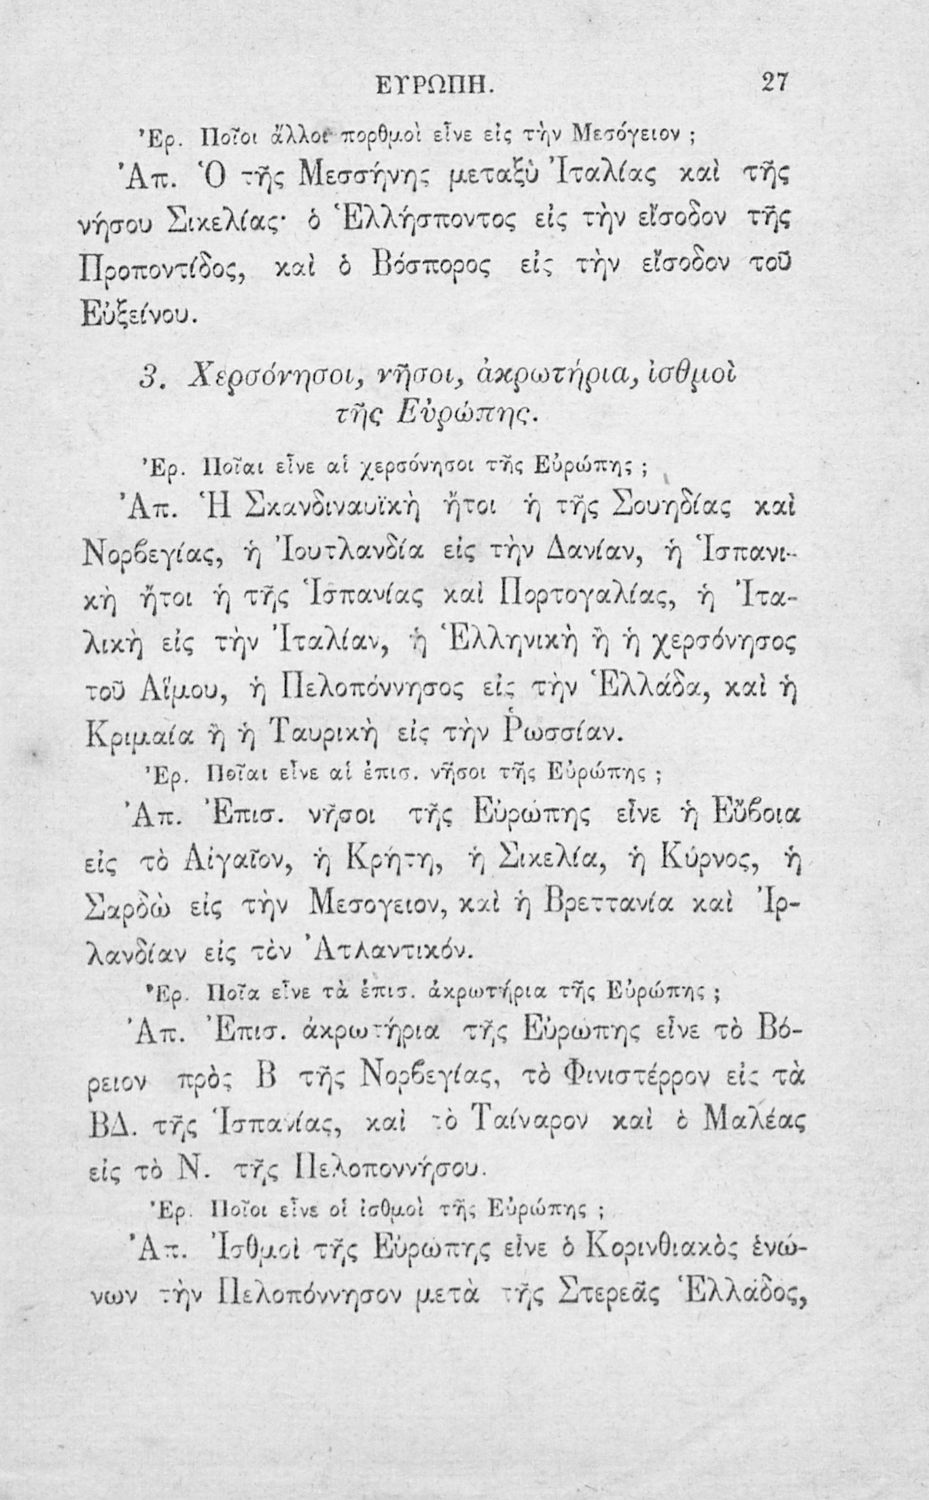 ΕΥΡΩΠΗ. 27
Ἐρ. Ποῖοι ἄλλοι πορθμοὶ εἶνε εἰς τὴν Μεσόγειον ;
Ἀπ. Ὁ τῆς Μεσσήνης μεταξὺ Ἰταλίας καὶ τῆς
νήσου Σικελίας· ὁ Ἑλλήσποντος εἰς τὴν εἴσοδον τῆς
Προποντίδος, καὶ ὁ Βόσπορος εἰς τὴν εἴσοδον τοῦ
Εὐξείνου.
3. Χερσόνησοι, νῆσοι, ἀκρωτήρια, ἰσθμοὶ
τῆς Εὐρώπης.
Ἐρ. Ποῖαι εἶνε αἱ χερσόνησοι τῆς Εὐρώπης ;
Ἀπ. Ἡ Σκανδιναυϊκὴ ἤτοι ἡ τῆς Σουηδίας καὶ
Νορβεγίας, ἡ Ἰουτλανδία εἰς τὴν Δανίαν, ἡ Ἱσπανι-
κὴ ἤτοι ἡ τῆς Ἱσπανίας καὶ Πορτογαλίας, ἡ Ἰτα-
λικὴ εἰς τὴν Ἰταλίαν, ἡ Ἑλληνικὴ ἢ ἡ χερσόνησος
τοῦ Αἵμου, ἡ Πελοπόννησος εἰς τὴν Ἑλλάδα, καὶ ἡ
Κριμαία ἢ ἡ Ταυρικὴ εἰς τὴν Ῥωσσίαν.
Ἐρ. Ποῖαι εἶνε αἱ ἐπισ. νῆσοι τῆς Εὐρώπης ;
Ἀπ. Ἐπισ. νῆσοι τῆς Εὐρώπης εἶνε ἡ Εὔβοια
εἰς τὸ Αἰγαῖον, ἡ Κρήτη, ἡ Σικελία, ἡ Κύρνος, ἡ
Σαρδὼ εἰς τὴν Μεσογειον, καὶ ἡ Βρεττανία καὶ Ἰρ-
λανδίαν εἰς τὸν Ἀτλαντικόν.
Ἐρ. Ποῖα εἶνε τὰ ἐπισ. ἀκρωτήρια τῆς Εὐρώπης ;
Ἀπ. Ἐπισ. ἀκρωτήρια τῆς Εὐρώπης εἶνε τὸ Βό-
ρειον πρὸς Β τῆς Νορβεγίας, τὸ Φινιστέρρον εἰς τὰ
ΒΔ. τῆς Ἱσπανίας, καὶ τὸ Ταίναρον καὶ ὁ Μαλέας
εἰς τὸ Ν. τῆς Πελοποννήσου.
Ἐρ. Ποῖοι εἶνε οἱ ἰσθμοὶ τῆς Εὐρώπης ;
Ἀπ. Ἰσθμοὶ τῆς Εὐρώπης εἶνε ὁ Κορινθιακὸς ἑνώ-
νων τὴν Πελοπόννησον μετὰ τῆς Στερεᾶς Ἑλλάδος,